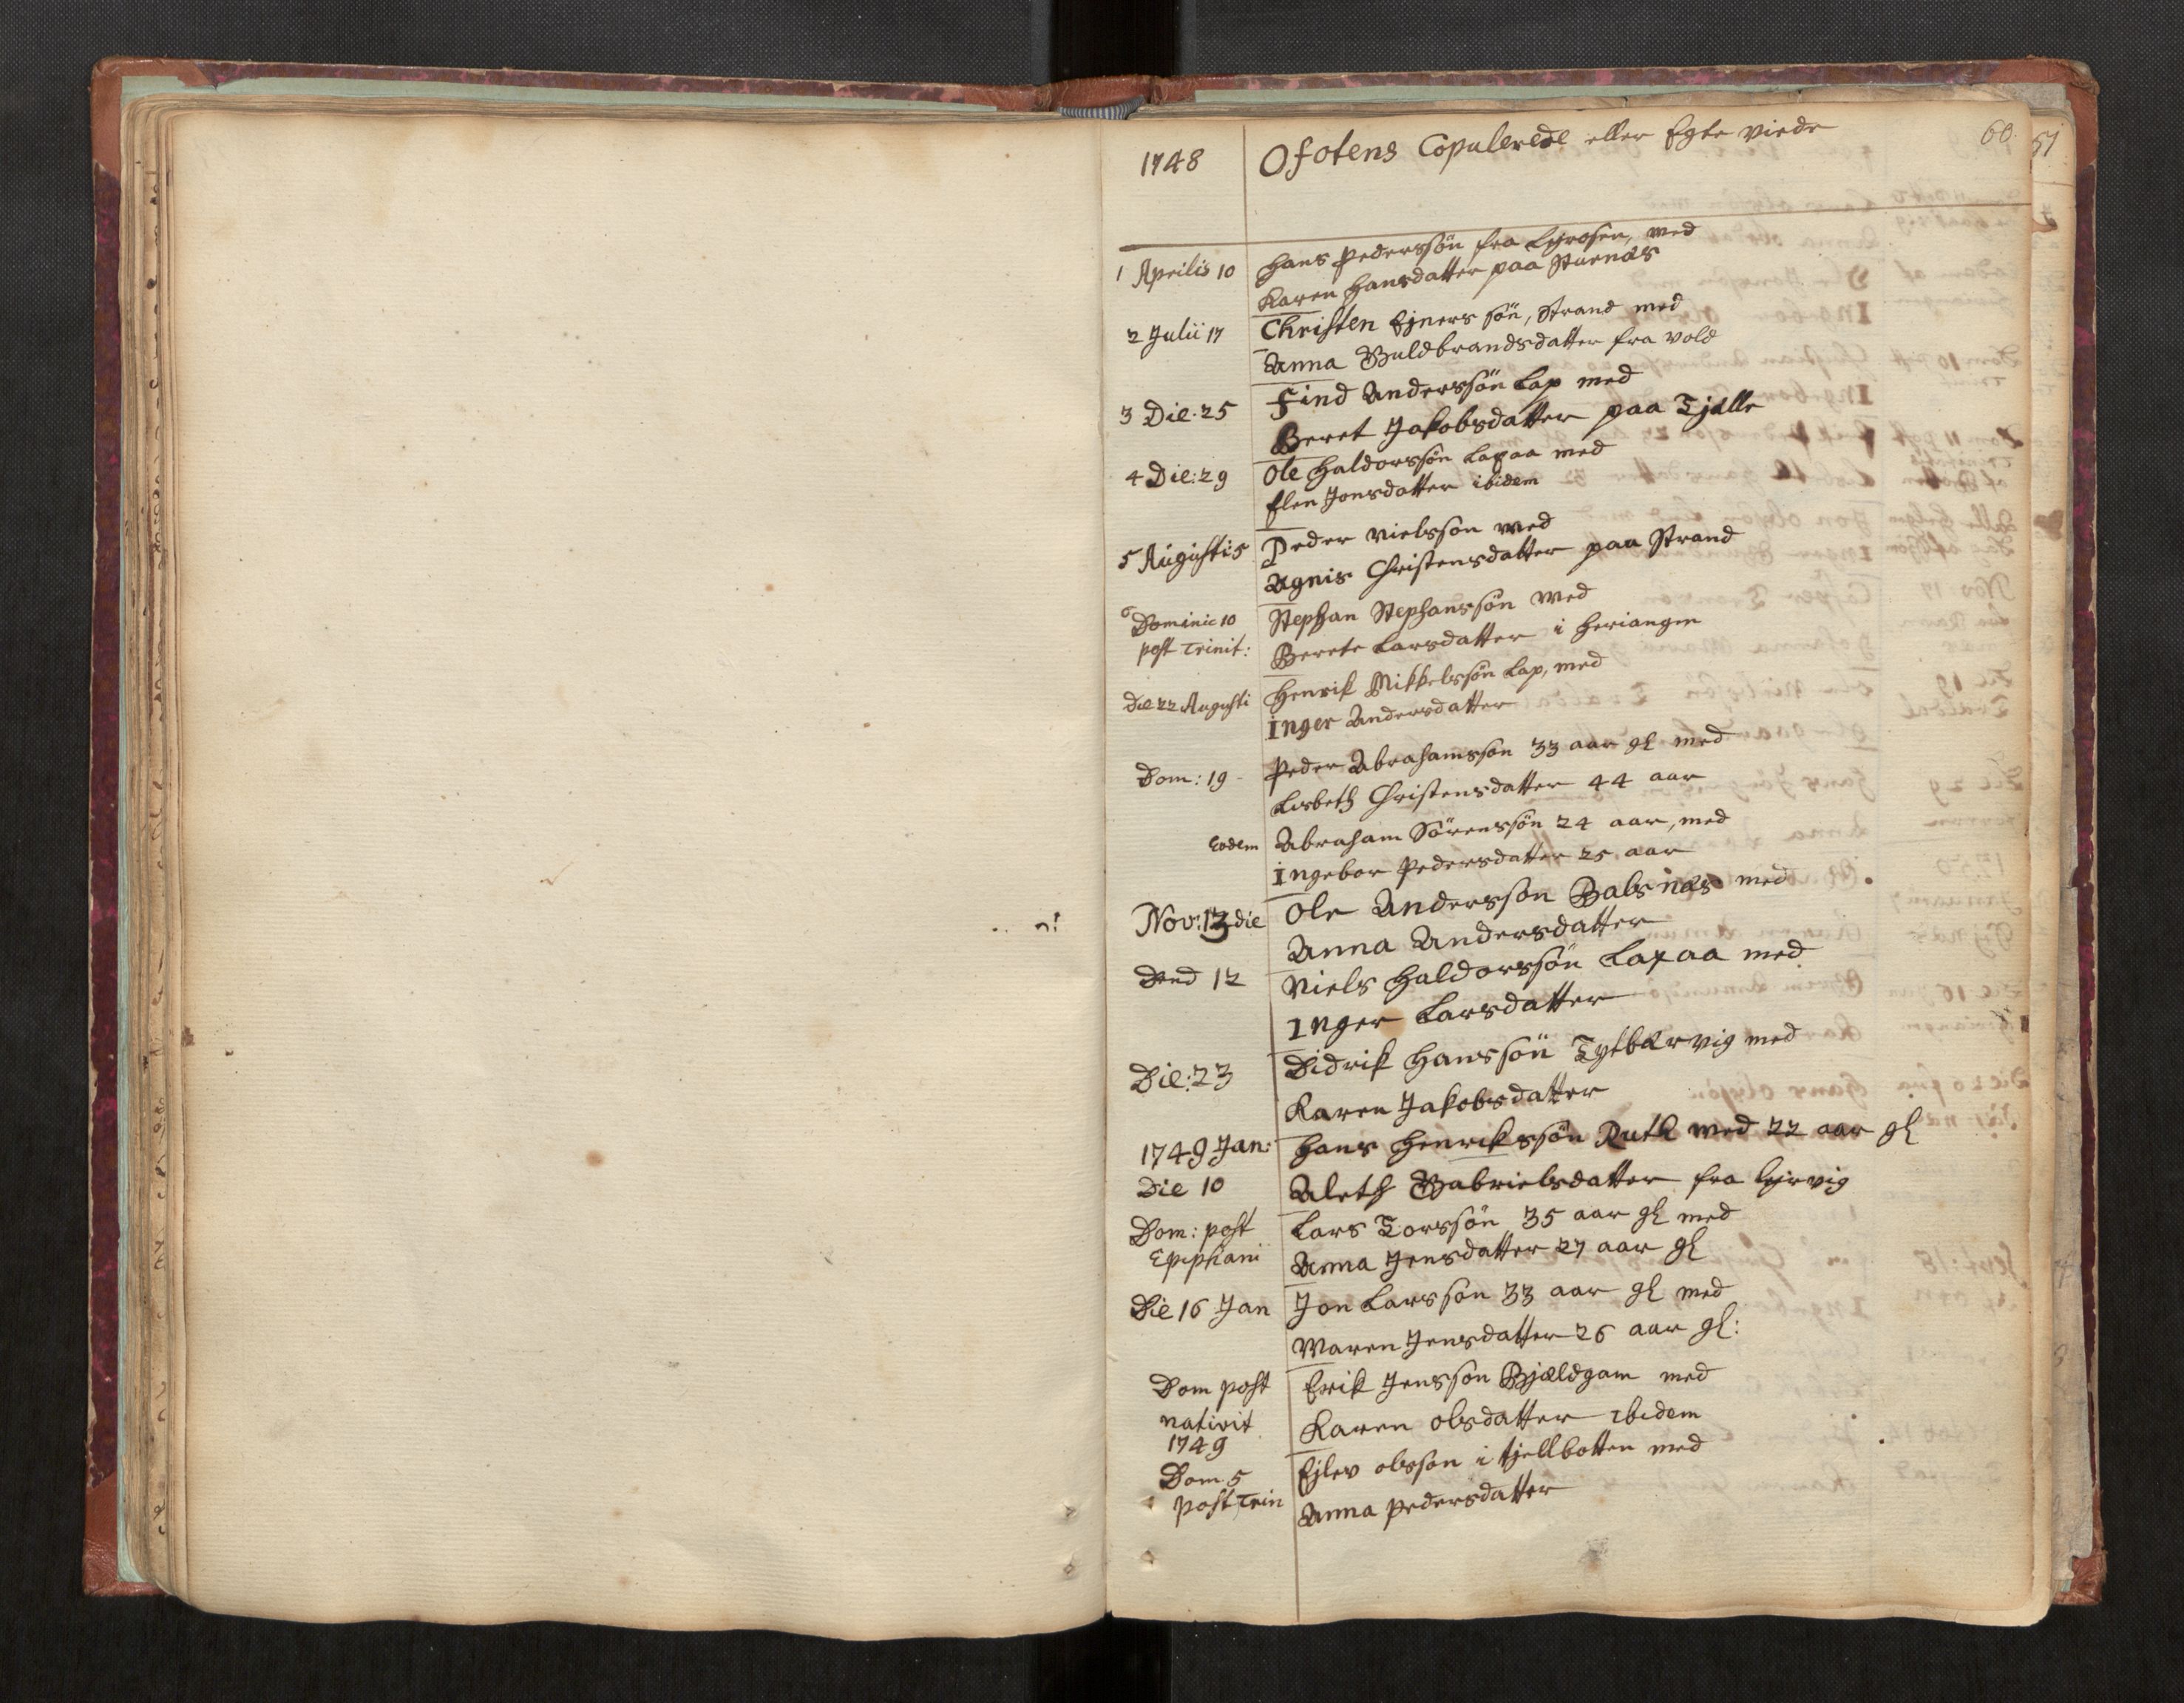 1748 Ofotens Copulerede eller Egte viede 60.
51
1 Aprilis 10 Hans Pederssön fra Lyrosen, med
Karen Hansdatter paa Stuenæs
2 Julii 17 Christen Ejners sön, Strand med
Anna Guldbrandsdatter fra vold
3 Die. 25 Find Anderssön Lap med
Beret Jakobsdatter paa Tjælle
4 Die: 29 Ole Haldorssön Lapaa med
Elen Jonsdatter ibidem
5 Augusti 5 Peder Nielsson med
Agnis Christensdatter paa Strand
6 Dominic 10 Stephan Stephanssön med
post Trinit: Berete Larsdatter i Heriangen
Die 22 Augusti Henrik Mikkelssön Lap, med
Inger Andersdatter
Dom: 19 - Peder Abrahamsson 33 aar gl med
Lisbeth Christensdatter 44 aar
Eodem Abraham Sörenssön 24 aar, med
Ingebor Pedersdatter 25 aar
Nov: 13 die Ole Andersson Balsnæs med
Anna Andersdatter
12 Niels Haldorssön Lapaa med
Inger Larsdatter
Die: 23 Didrik Hanssön Tytbærvig med
Karen Jakobsdatter
1749 Jan: Hans Henrikssön Ruth med 22 aar gl
Die 10 Aleth Gabrielsdatter fra Lyrvig
Dom: post Lars Torssön 35 aar gl med
Epiphani Anna Jensdatter 27 aar gl
Die 16 Jan Jon Larsson 33 aar gl med
Maren Jensdatter 26 aar gl:
Dom post Erik Jensson Bjældgam med
nativit Karen olsdatter ibidem
1749
Dom. 5 Ejlev olsson i tjellbotten med
post Trin Anna Pedersdatter